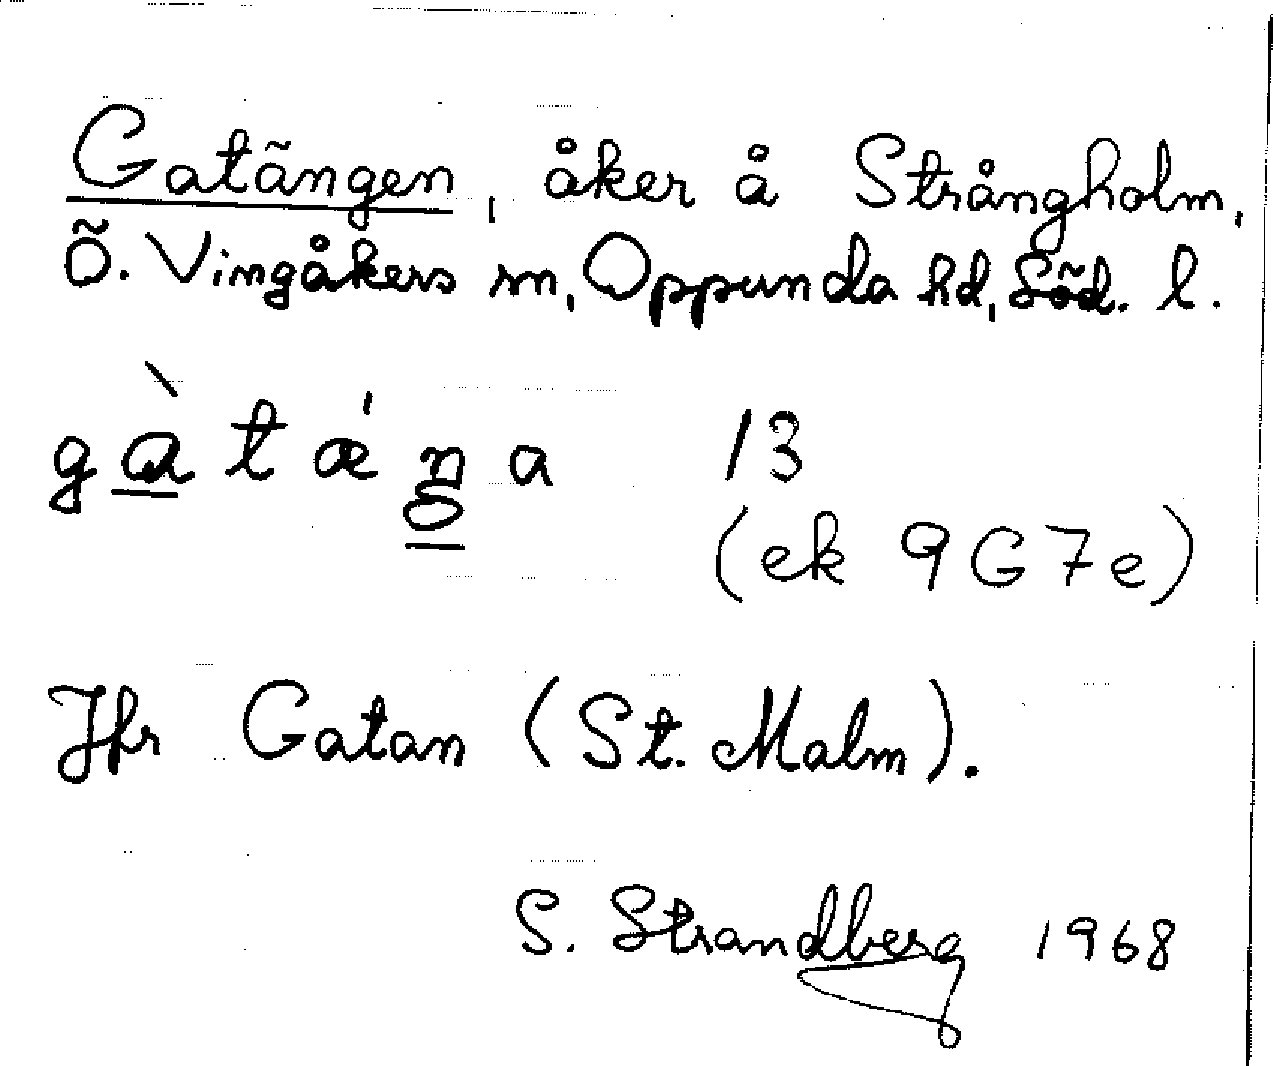 Gatängen, åker å Strångholm,
Ö. Vingåkers sn, Oppunda hd, Söd. l.
gàtǽŋa 13
(ek 9G7e)
Jfr Gatan (St. Malm).
S. Strandberg 1968